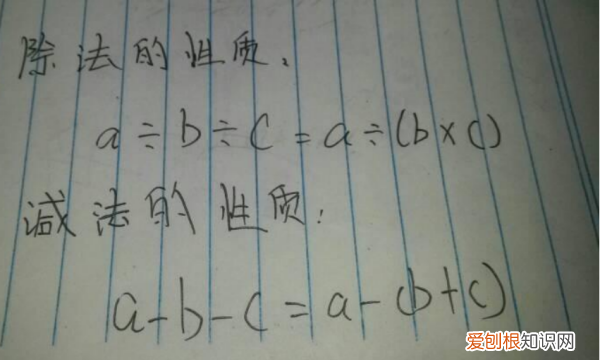 除法的性质,
a÷b÷c=a÷(b×c)
减法的性质:
a-b-c=a-(b+c)
爱刨根知识网